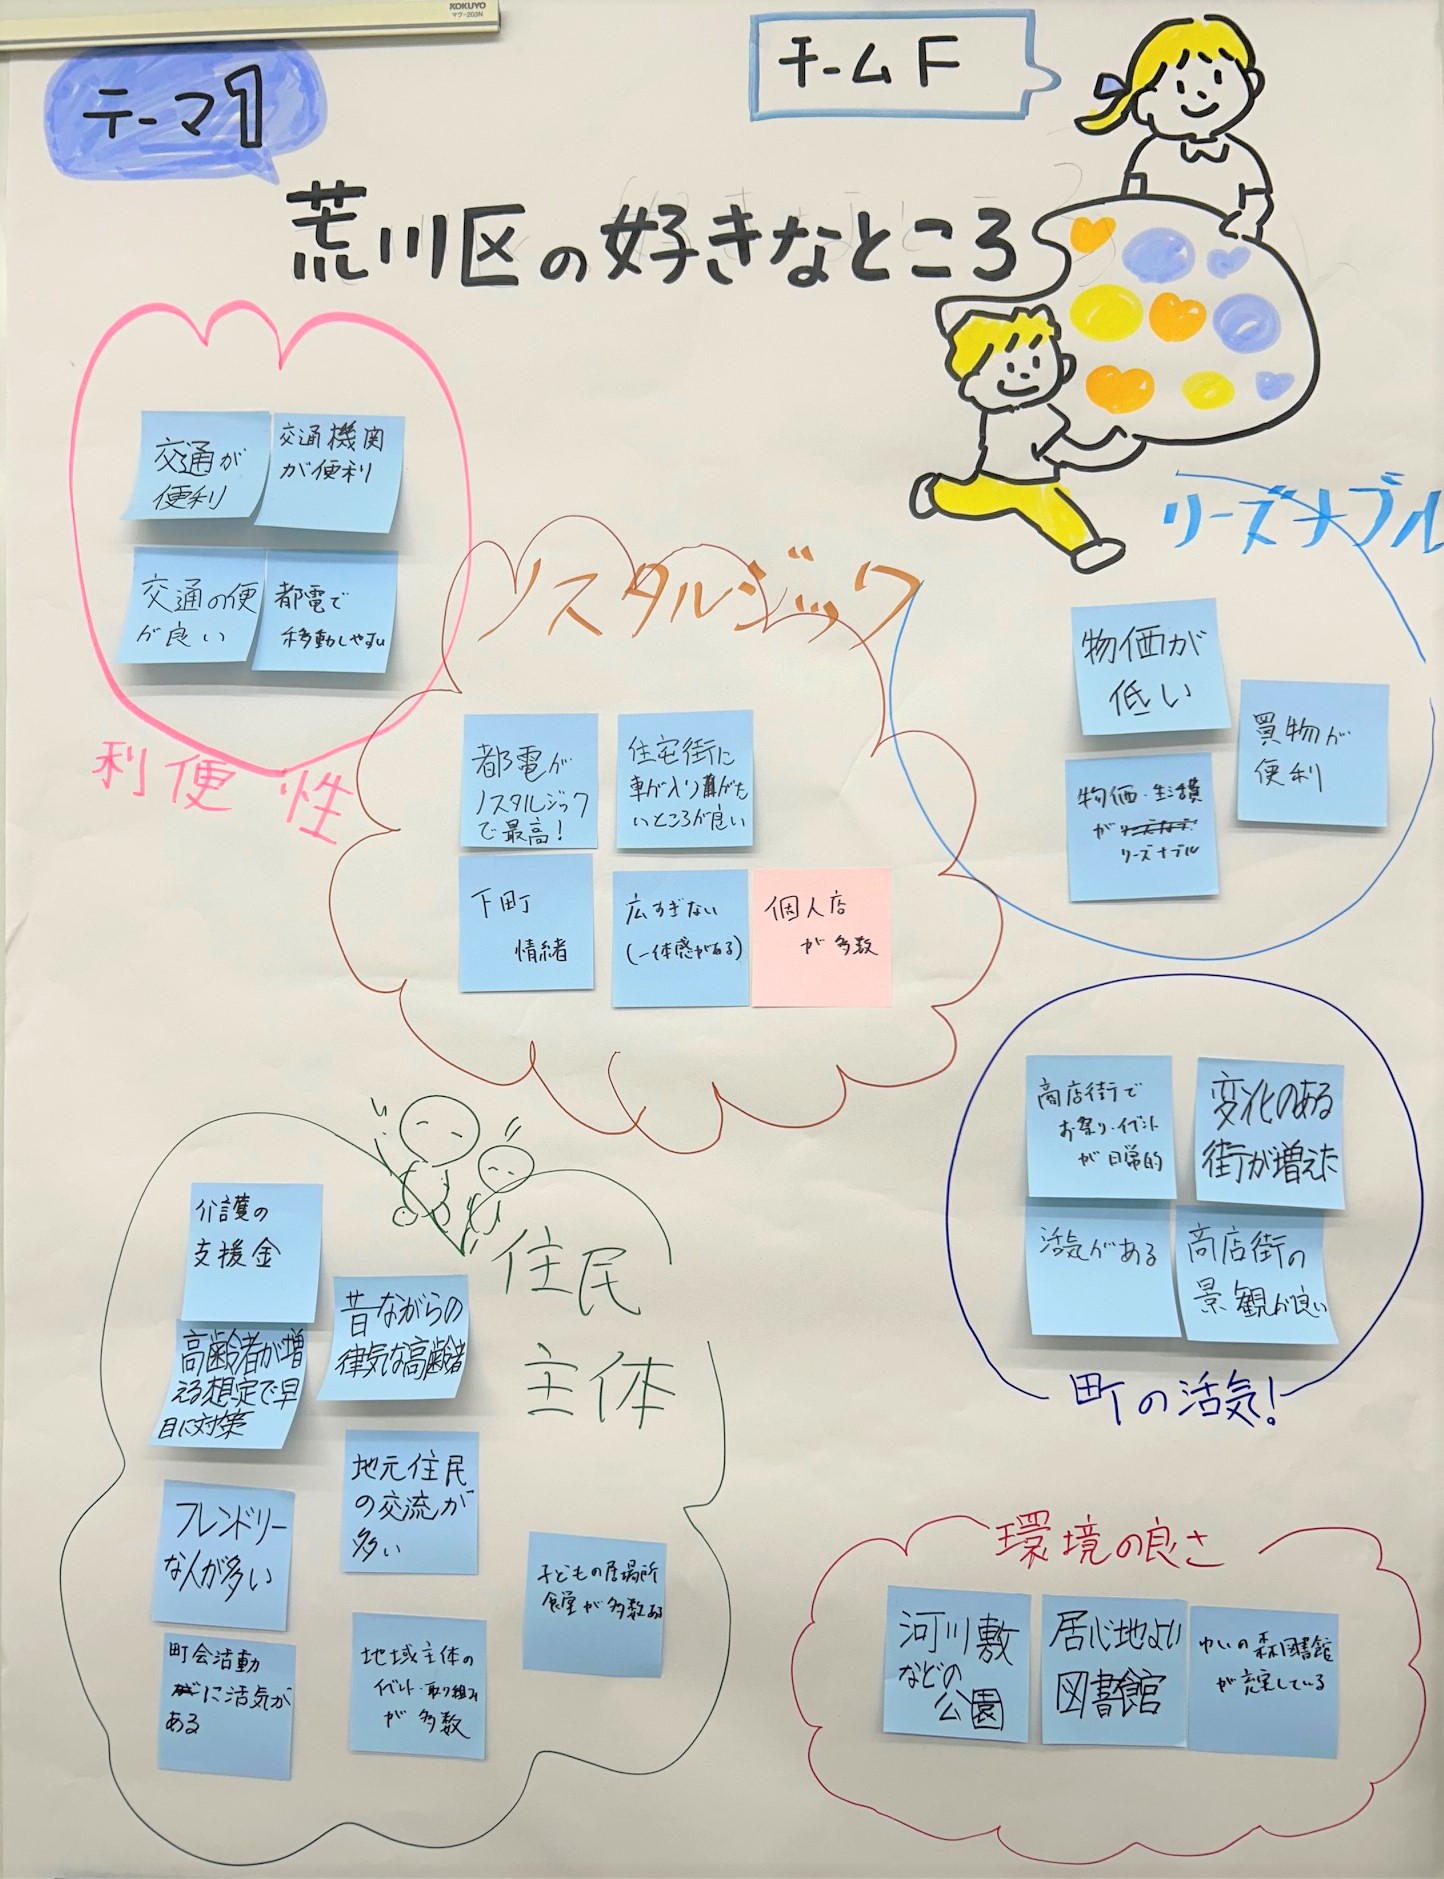 KOKUYO
マク-203N
テーマ1
チームF
荒川区の好きなところ
利便性
交通が
便利
交通機関
が便利
交通の便
が良い
都電で
移動しやすい
ノスタルジック
都電が
ノスタルジック
で最高!
住宅街に
車が入り難がた
いところが良い
下町
情緒
広すぎない
(一体感がある)
個人店
が多数
リーズナブル
物価が
低い
買物が
便利
物価・生活費
が
リーズナブル
町の活気!
商店街で
お祭り・イベント
が日常的
変化のある
街が増えた
活気がある
商店街の
景観が良い
住民
主体
介護の
支援金
高齢者が増
える想定で早
目に対策
昔ながらの
律気な高齢者
フレンドリー
な人が多い
地元住民
の交流が
多い
子どもの居場所
食堂が多数ある
町会活動
に活気が
ある
地域主体の
イベント・取り組み
が多数
環境の良さ
河川敷
などの
公園
居心地よい
図書館
ゆいの森図書館
が充実している